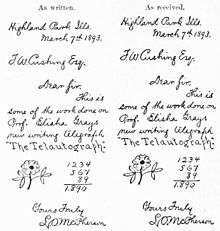 As written.
Highland Park Ills.
March 7th 1893.
F.W. Cushing Esq.
Dear Sir.
This is
some of the work done on
Prof. Elisha Grays
new writing telegraph
"The Telautograph."
1234
567
89
1890
Yours Truly
S.O. McPherson
As received.
Highland Park Ills.
March 7th 1893.
F.W. Cushing Esq.
Dear Sir.
This is
some of the work done on
Prof. Elisha Grays
new writing telegraph
"The Telautograph."
1234
567
89
1890
Yours Truly
S.O. McPherson